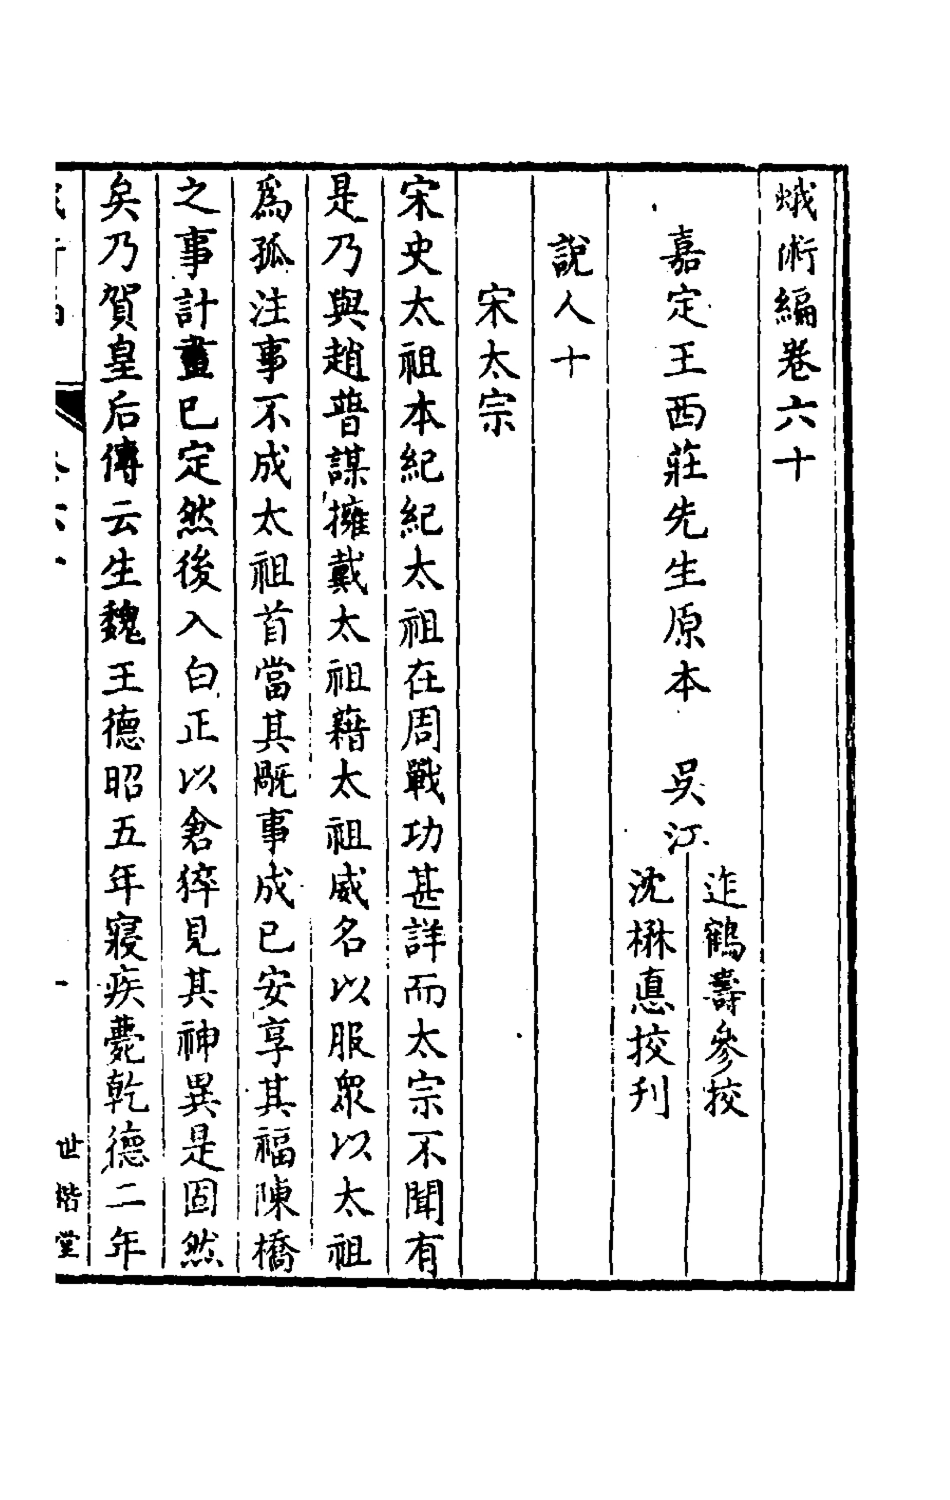 蛾術編卷六十
嘉定王西莊先生原本　吳江
迮鶴壽參挍
沈楙悳挍刋
說人十
宋太宗
宋史太祖本紀紀太祖在周戰功甚詳而太宗不聞有
是乃與趙普謀擁戴太祖藉太祖威名以服眾以太祖
爲孤注事不成太祖首當其𠪱事成已安享其福陳橋
之事計畫已定然後入白正以倉猝見其神異是固然
矣乃賀皇后傳云生魏王德昭五年寢疾薨乾德二年
世楷堂